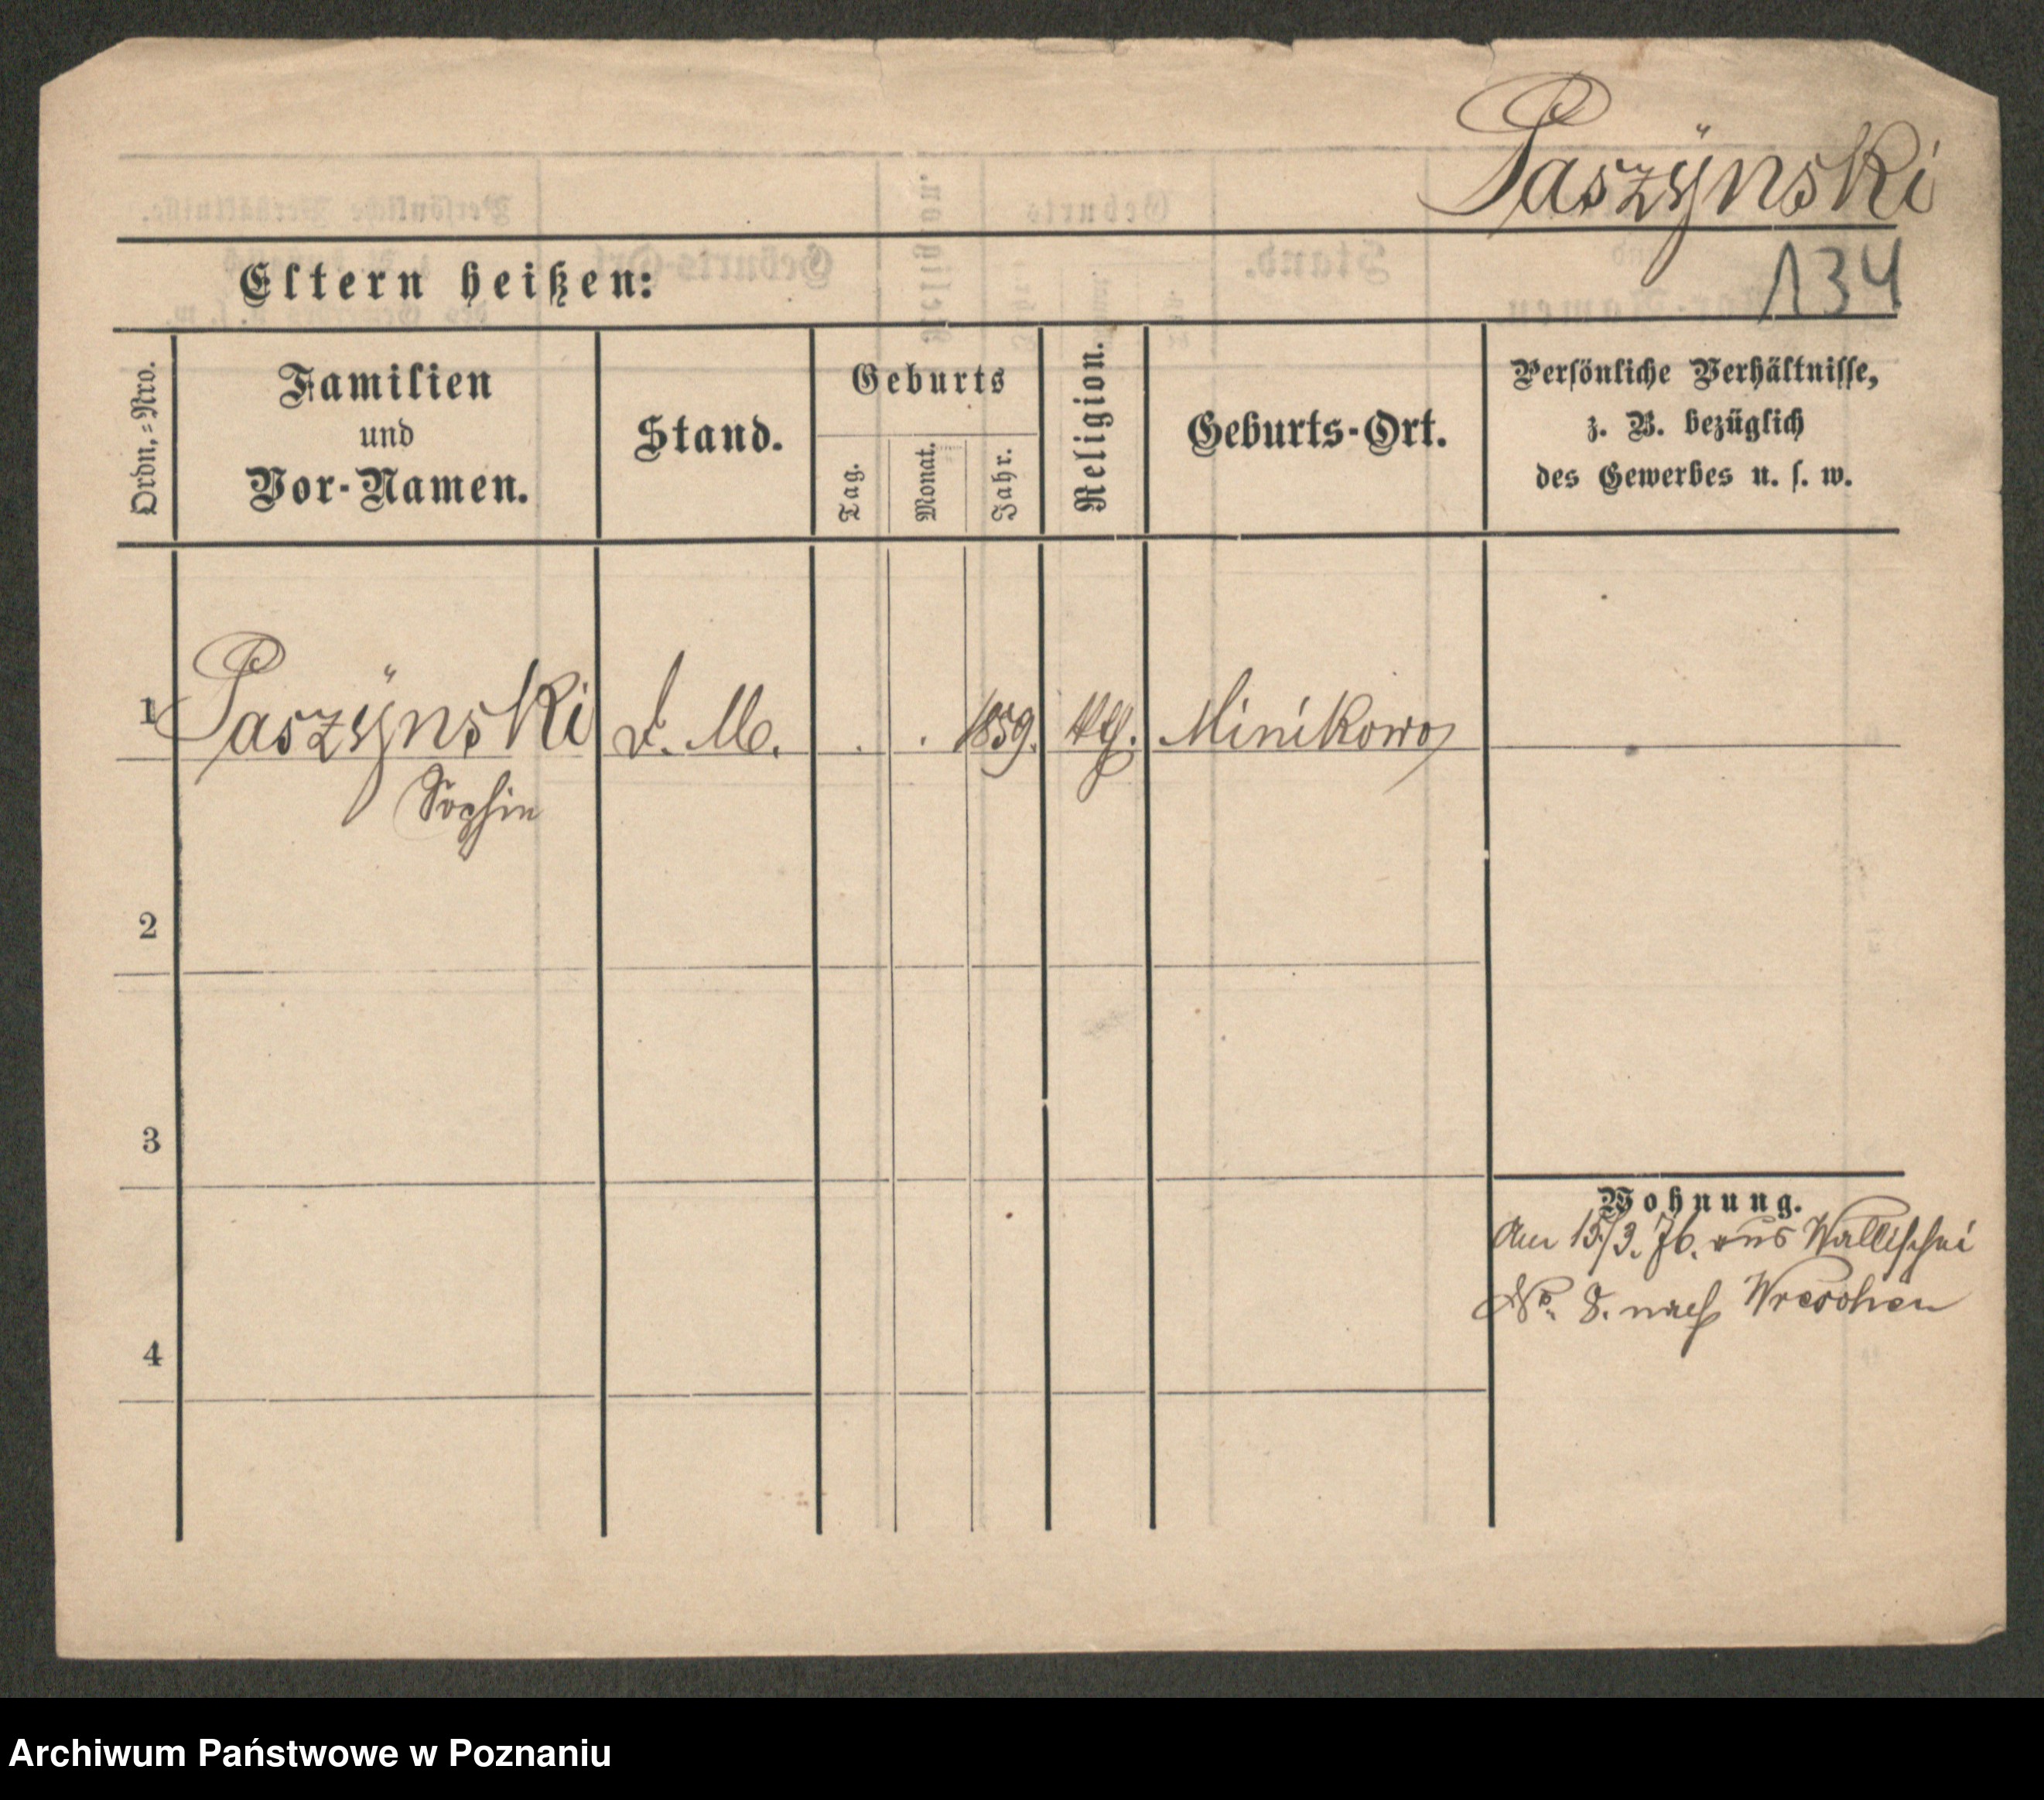 Paszÿnski
134
Eltern heißen:
Ordn.-Nro.
Familien
und
Vor-Namen.
Stand.
Geburts
Tag.
Monat.
Jahr.
Religion.
Geburts-Ort.
Persönliche Verhältnisse,
z. B. bezüglich
des Gewerbes u. s. w.
1
Paszÿnski
Sophie
d. M.
1859.
Minikowo
2
3
4
Wohnung.
Am 15/3. 76. aus Wallischei
No. 8. nach Wreschen
Archiwum Państwowe w Poznaniu